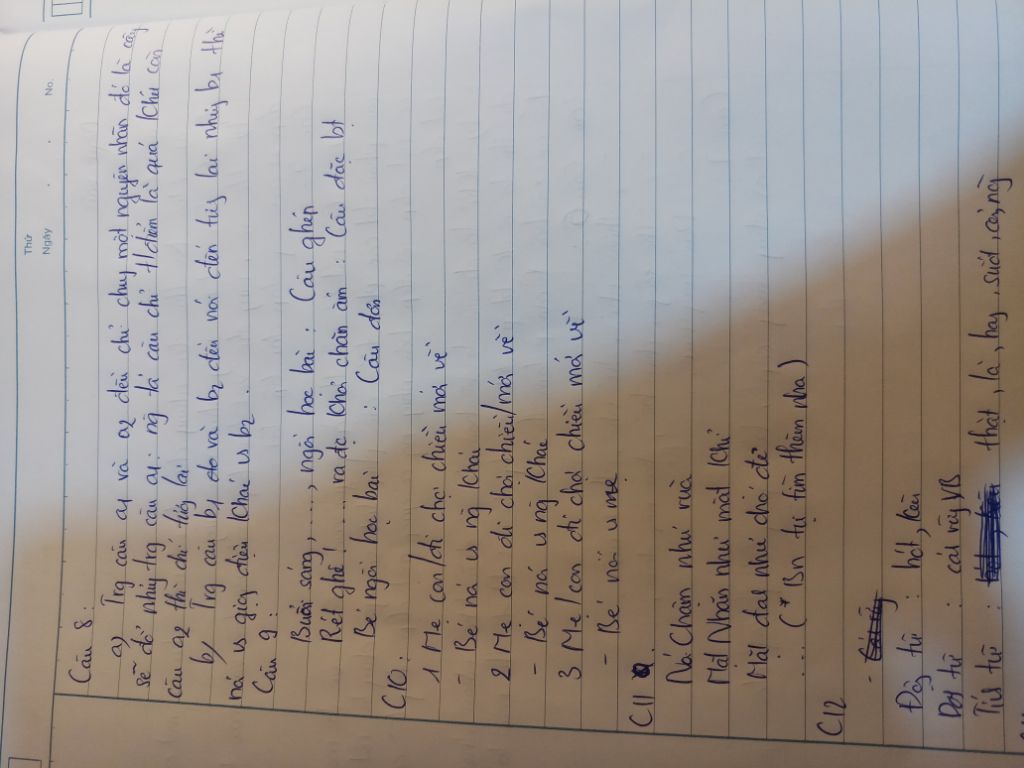 Thứ
Ngày . . No.
Câu 8:
a) Trg câu a1 và a2 đều chỉ chung một nguyên nhân đó là cây
sẽ đổ nhưng trg câu a1: ng ta câu chỉ t/điểm là quá khứ còn
câu a2 thì chỉ tương lai
b) Trg câu b1 do và b2 đều nói đến tương lai nhưng b1 thì
nó vs giọng điệu khác vs b2.
Câu 9:
Buổi sáng,....., ngồi học bài : Câu ghép
Rét ghê! .... ra đc khỏi chăn ấm : Câu đặc bt
Bé ngồi học bài : Câu đơn
C10.
1 Mẹ con/đi chợ chiều mới về
- Bé nó vs ng khác
2 Mẹ con đi chợ chiều/mới về
- Bé nó vs ng khác
3 Mẹ/con đi chợ chiều mới về
- Bé nói vs mẹ
C11
Nó Chậm như rùa
Mặt Nhăn như mặt khỉ
Mặt đạt như chó đẻ
... (*Bn tự tìm thêm nha)
C12
-
Độg từ : bớt, kêu
Dah từ : cái váy, VB
Tíh từ : thật, là, hay, suốt, cả, ngày